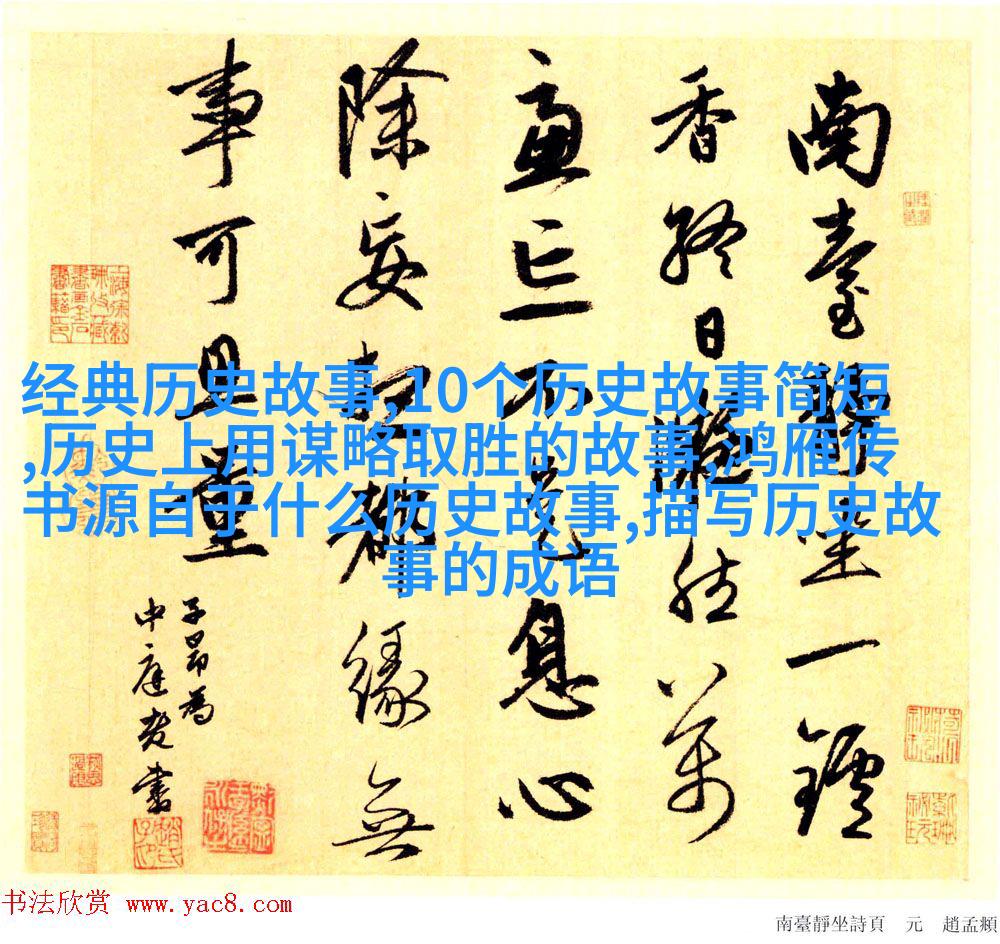 经典历史故事,10个历史故事简短
,历史上用谋略取胜的故事,鸿雁传
书源自于什么历史故事,描写历史故
事的成语
南臺靜坐一鑪
香終日凝然萬
慮亡不是息心
除妄想都緣無
事可思量
子昂為
中庭老書
书法欣赏 www.yac8.com
南臺靜坐詩頁 元 趙孟頫